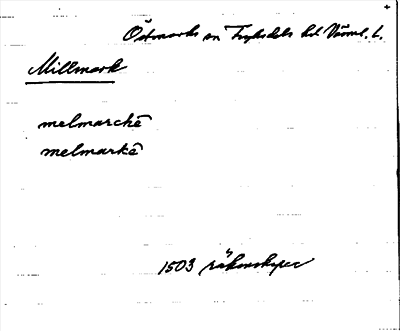 Östmarks sn Fryksdals hd Värml. l.
Millmark
melmarchē
melmarkē
1503 räkenskaper